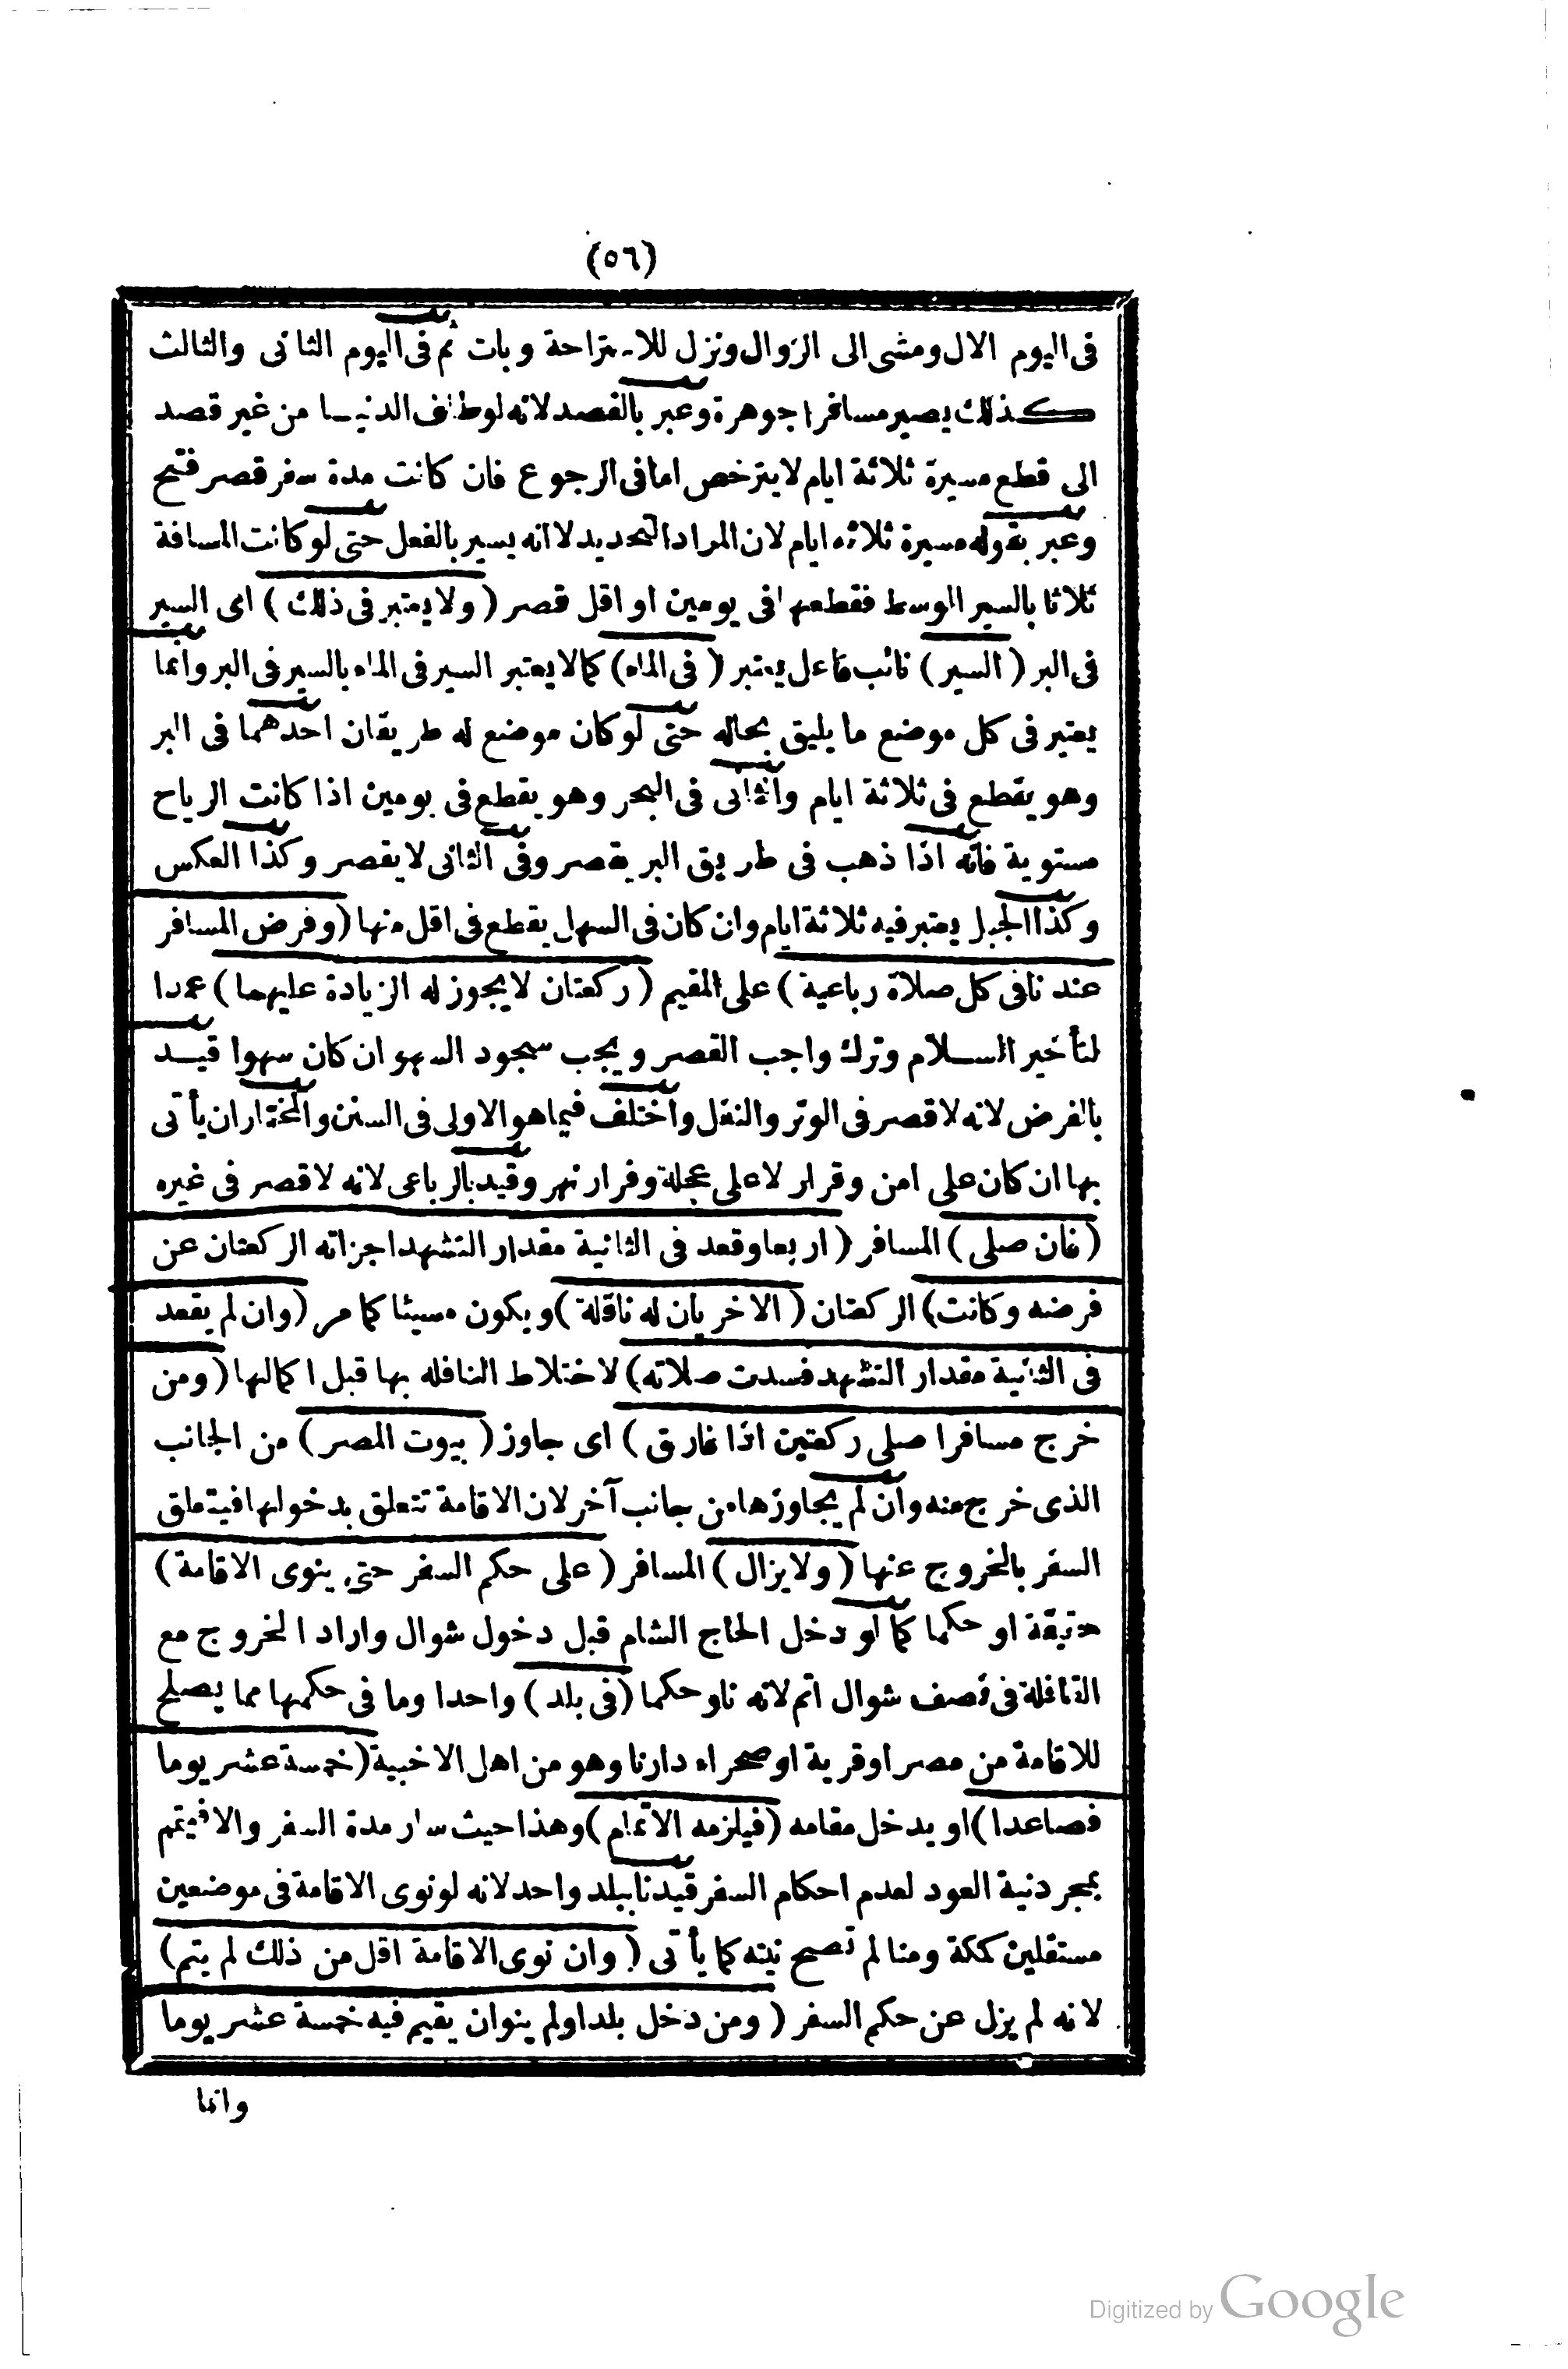 (٥٦)
فى اليوم الال ومشى الى الزوال ونزل للاستراحة وبات ثم فى اليوم الثانى والثالث
كذلك يصير مسافرا جوهرة وعبر بالقصد لانه لو طاف الدنيا من غير قصد
الى قطع مسيرة ثلاثة ايام لا يترخص اما فى الرجوع فان كانت مدة سفر قصر فتح
وعبر بقوله مسيرة ثلاثة ايام لان المراد التحديد لا انه يسير بالفعل حتى لو كانت المسافة
ثلاثا بالسير الوسط فقطعها فى يومين او اقل قصر (ولا يعتبر فى ذلك) اى السير
فى البر (السير) نائب فاعل يعتبر (فى الماء) كما لا يعتبر السير فى الماء بالسير فى البر وانما
يعتبر فى كل موضع ما يليق بحاله حتى لو كان موضع له طريقان احدهما فى البر
وهو يقطع فى ثلاثة ايام والثانى فى البحر وهو يقطع فى يومين اذا كانت الرياح
مستوية فانه اذا ذهب فى طريق البر يقصر وفى الثانى لا يقصر وكذا العكس
وكذا الجبل يعتبر فيه ثلاثة ايام وان كان فى السهل يقطع فى اقل منها (وفرض المسافر
عندنا فى كل صلاة رباعية) على المقيم (ركعتان لا يجوز له الزيادة عليهما) عمدا
لتأخير السلام وترك واجب القصر ويجب سجود السهو ان كان سهوا قيد
بالفرض لانه لا قصر فى الوتر والنفل واختلف فيما هو الاولى فى السنن والمختار ان يأتى
بها ان كان على امن وقرار لا على عجلة وفرار نهر وقيد بالرباعى لانه لا قصر فى غيره
(فان صلى) المسافر (اربعا وقعد فى الثانية مقدار التشهد اجزاته الركعتان عن
فرضه وكانت) الركعتان (الاخريان له نافلة) ويكون مسيئا كما مر (وان لم يقعد
فى الثانية مقدار التشهد فسدت صلاته) لاختلاط النافله بها قبل اكمالها (ومن
خرج مسافرا صلى ركعتين اذا فارق) اى جاوز (بيوت المصر) من الجانب
الذى خرج منه وان لم يجاوزها من جانب آخر لان الاقامة تتعلق بدخولها فيتعلق
السفر بالخروج عنها (ولا يزال) المسافر (على حكم السفر حتى ينوى الاقامة)
حقيقة او حكما كما لو دخل الحاج الشام قبل دخول شوال واراد الخروج مع
القافلة فى نصف شوال اتم لانه ناو حكما (فى بلد) واحدا وما فى حكمها مما يصلح
للاقامة من مصر او قرية او صحراء دارنا وهو من اهل الاخبية (خمسة عشر يوما
فصاعدا) او يدخل مقامه (فيلزمه الاتمام) وهذا حيث سار مدة السفر والا فيتم
بمجرد نية العود لعدم احكام السفر قيدنا ببلد واحد لانه لو نوى الاقامة فى موضعين
مستقلين كمكة ومنا لم تصح نيته كما يأتى (وان نوى الاقامة اقل من ذلك لم يتم)
لانه لم يزل عن حكم السفر (ومن دخل بلدا ولم ينو ان يقيم فيه خمسة عشر يوما
وانما
Digitized by Google